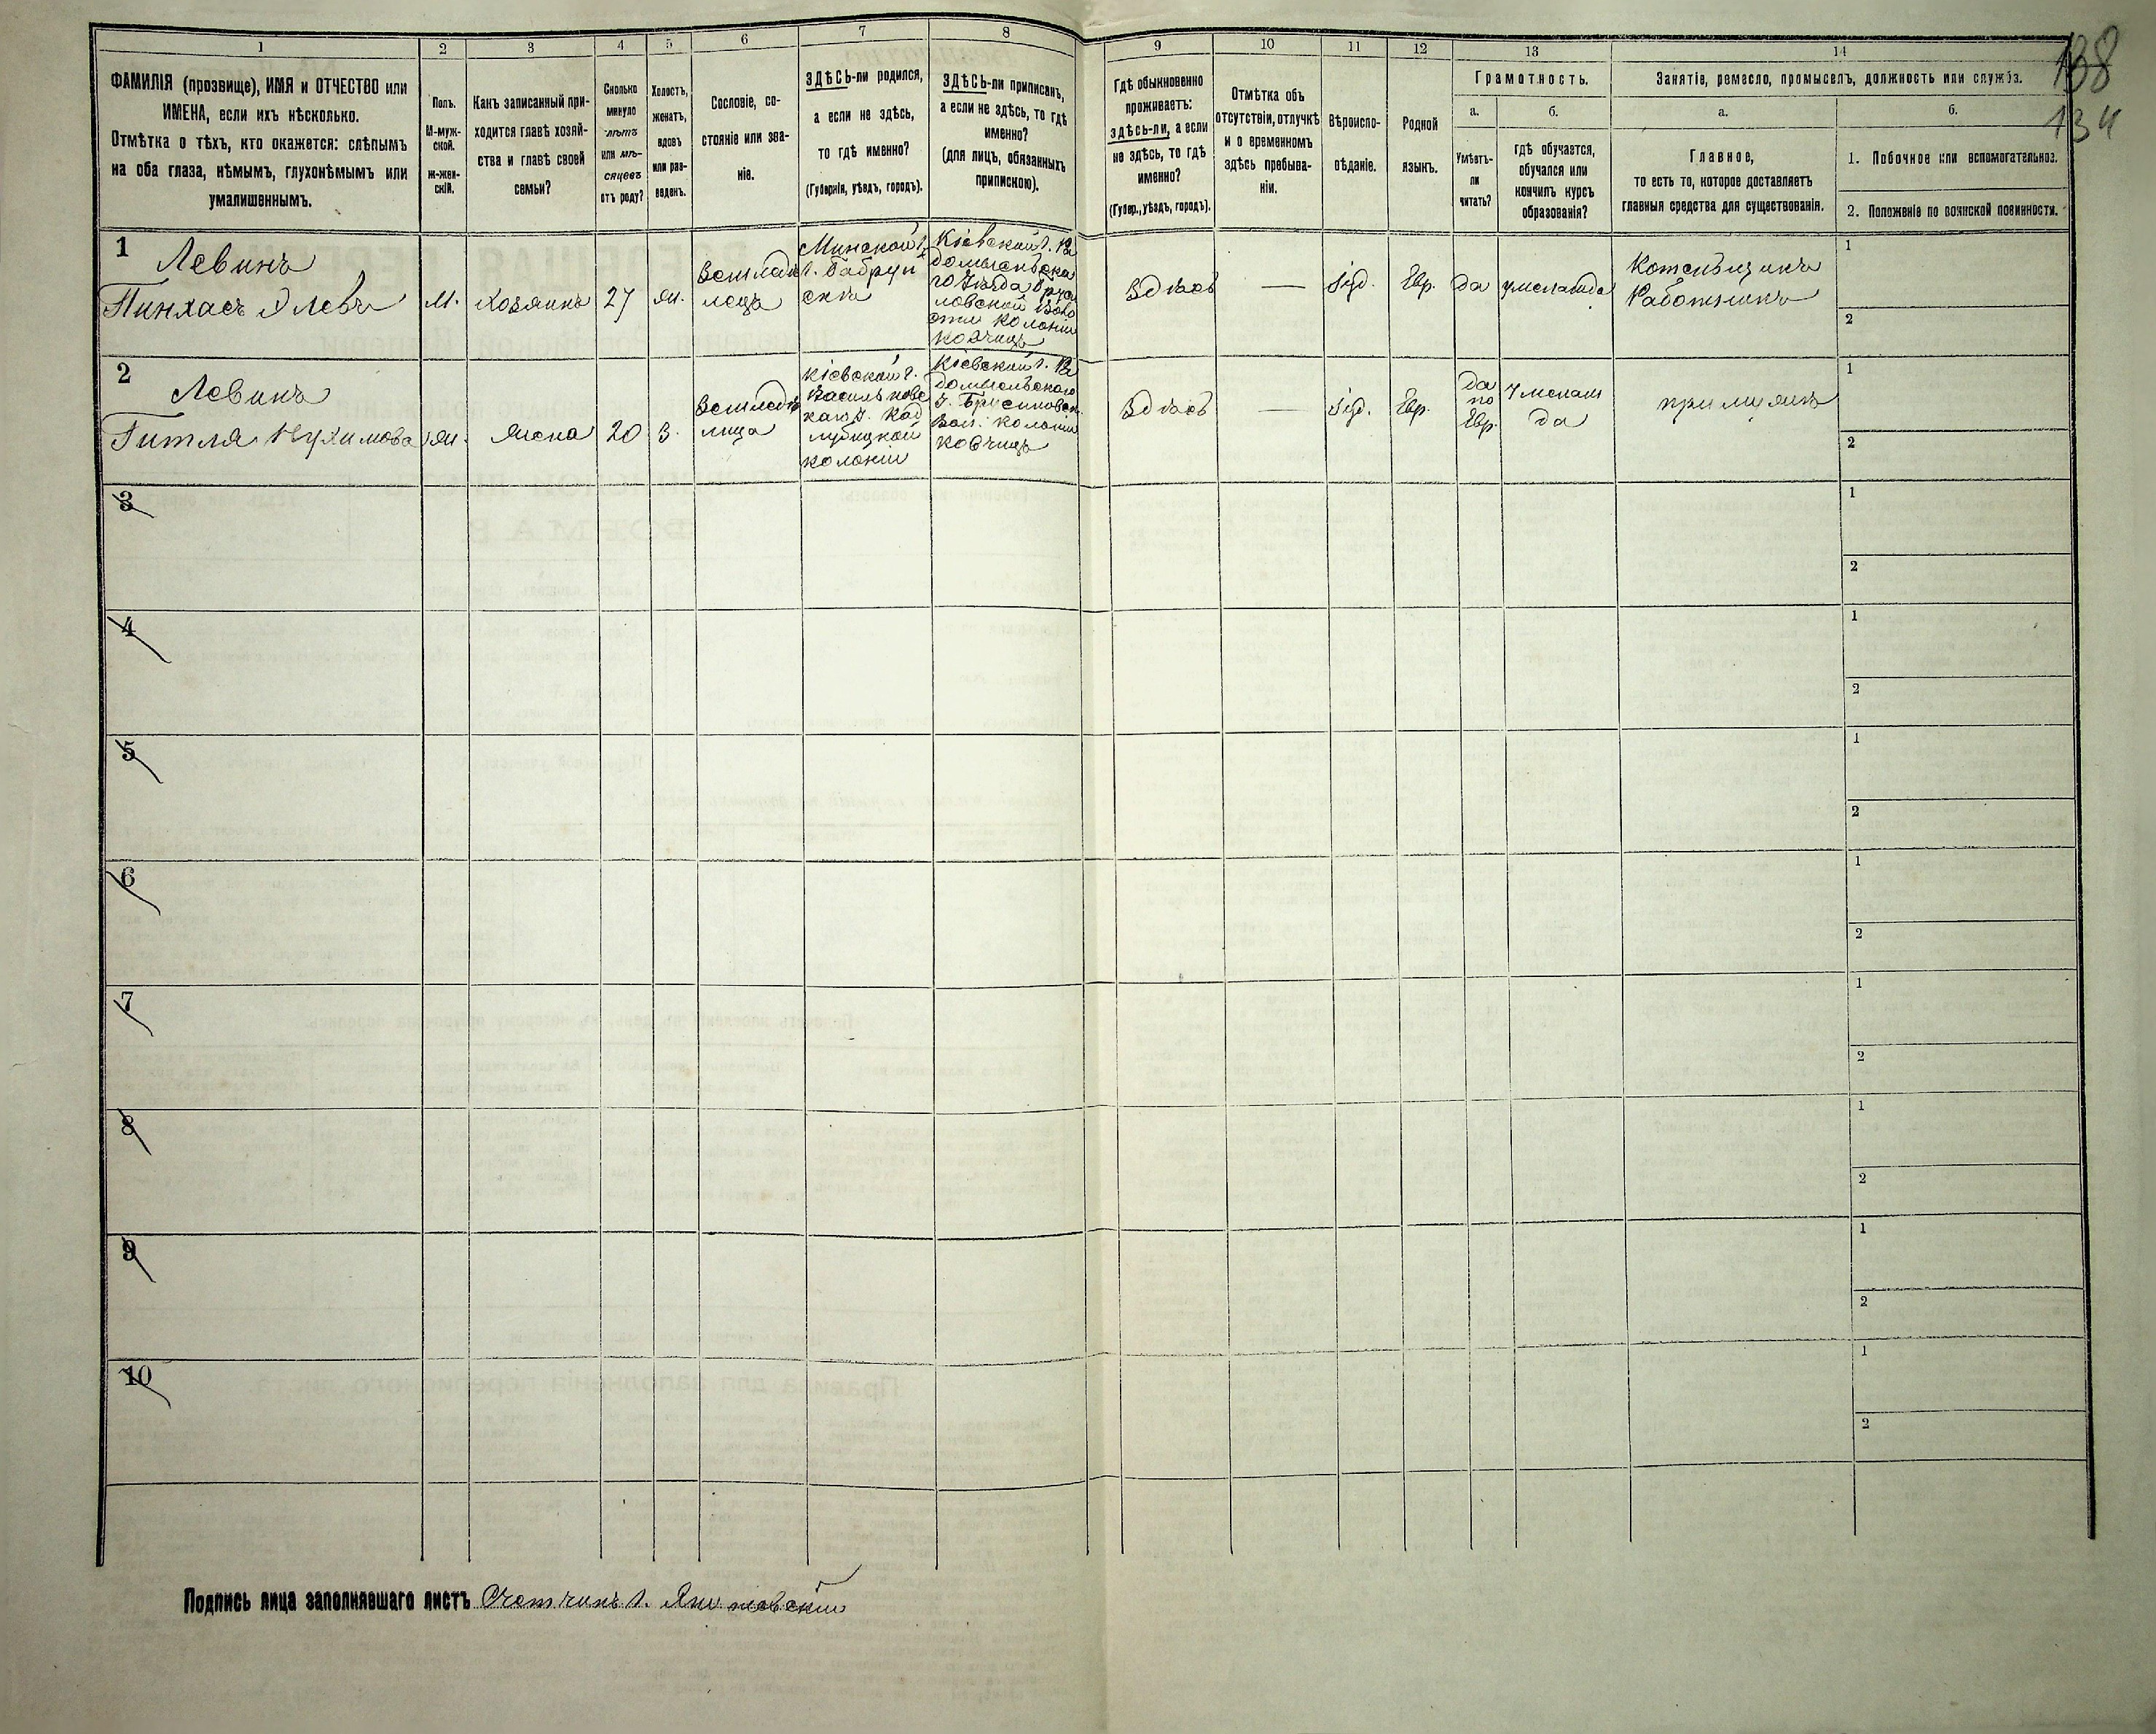 138
134
1
2
3
4
5
6
7
8
9
10
11
12
13
14
ФАМИЛІЯ (прозвище), ИМЯ и ОТЧЕСТВО или
ИМЕНА, если ихъ нѣсколько.
Отмѣтка о тѣхъ, кто окажется: слѣпымъ
на оба глаза, нѣмымъ, глухонѣмымъ или
умалишеннымъ.
Полъ.
М-муж-
ской.
Ж-жен-
скій.
Какъ записанный при-
ходится главѣ хозяй-
ства и главѣ своей
семьи?
Сколько
минуло
лѣтъ
или мѣ-
сяцевъ
отъ роду?
Холостъ,
женатъ,
вдовъ
или раз-
веденъ.
Сословіе, со-
стояніе или зва-
ніе.
ЗДѢСЬ-ли родился,
а если не здѣсь,
то гдѣ именно?
(Губернія, уѣздъ, городъ).
ЗДѢСЬ-ли приписанъ,
а если не здѣсь, то гдѣ
именно?
(для лицъ, обязанныхъ
припискою).
Гдѣ обыкновенно
проживаетъ:
здѣсь-ли, а если
не здѣсь, то гдѣ
именно?
(Губер., уѣздъ, городъ).
Отмѣтка объ
отсутствіи, отлучкѣ
и о временномъ
здѣсь пребыва-
ніи.
Вѣроиспо-
вѣданіе.
Родной
языкъ.
Грамотность.
а.
Умѣетъ-
ли
читать?
б.
гдѣ обучается,
обучался или
кончилъ курсъ
образованія?
Занятіе, ремесло, промыселъ, должность или служба.
а.
Главное,
то есть то, которое доставляетъ
главныя средства для существованія.
б.
1. Побочное или вспомогательное.
2. Положеніе по воинской повинности.
1
Левинъ
Пинхасъ
М.
Хозяинъ
27
Ж.
Земледѣ
лецъ
Минской г.
г. Бабруй
скъ
Кіевской г. Ра
домысльска
го Уѣзда
ловской Воло
сти колоніи
Ковчицъ
Здѣсь
—
Іуд.
Евр.
да
1
2
2
Левинъ
Гитля Нухимова
Ж.
Жена
20
З.
Земледѣ
лица
Кіевской г.
Васильков
каго у.
колоніи
Кіевской г. Ра
домысльскаго
у.
Вол. колоніи
Ковчицъ
Здѣсь
—
Іуд.
Евр.
да
по
Евр.
да
при мужѣ
1
2
3
1
2
4
1
2
5
1
2
6
1
2
7
1
2
8
1
2
9
1
2
10
1
2
Подпись лица заполнявшаго листъ Счетчикъ